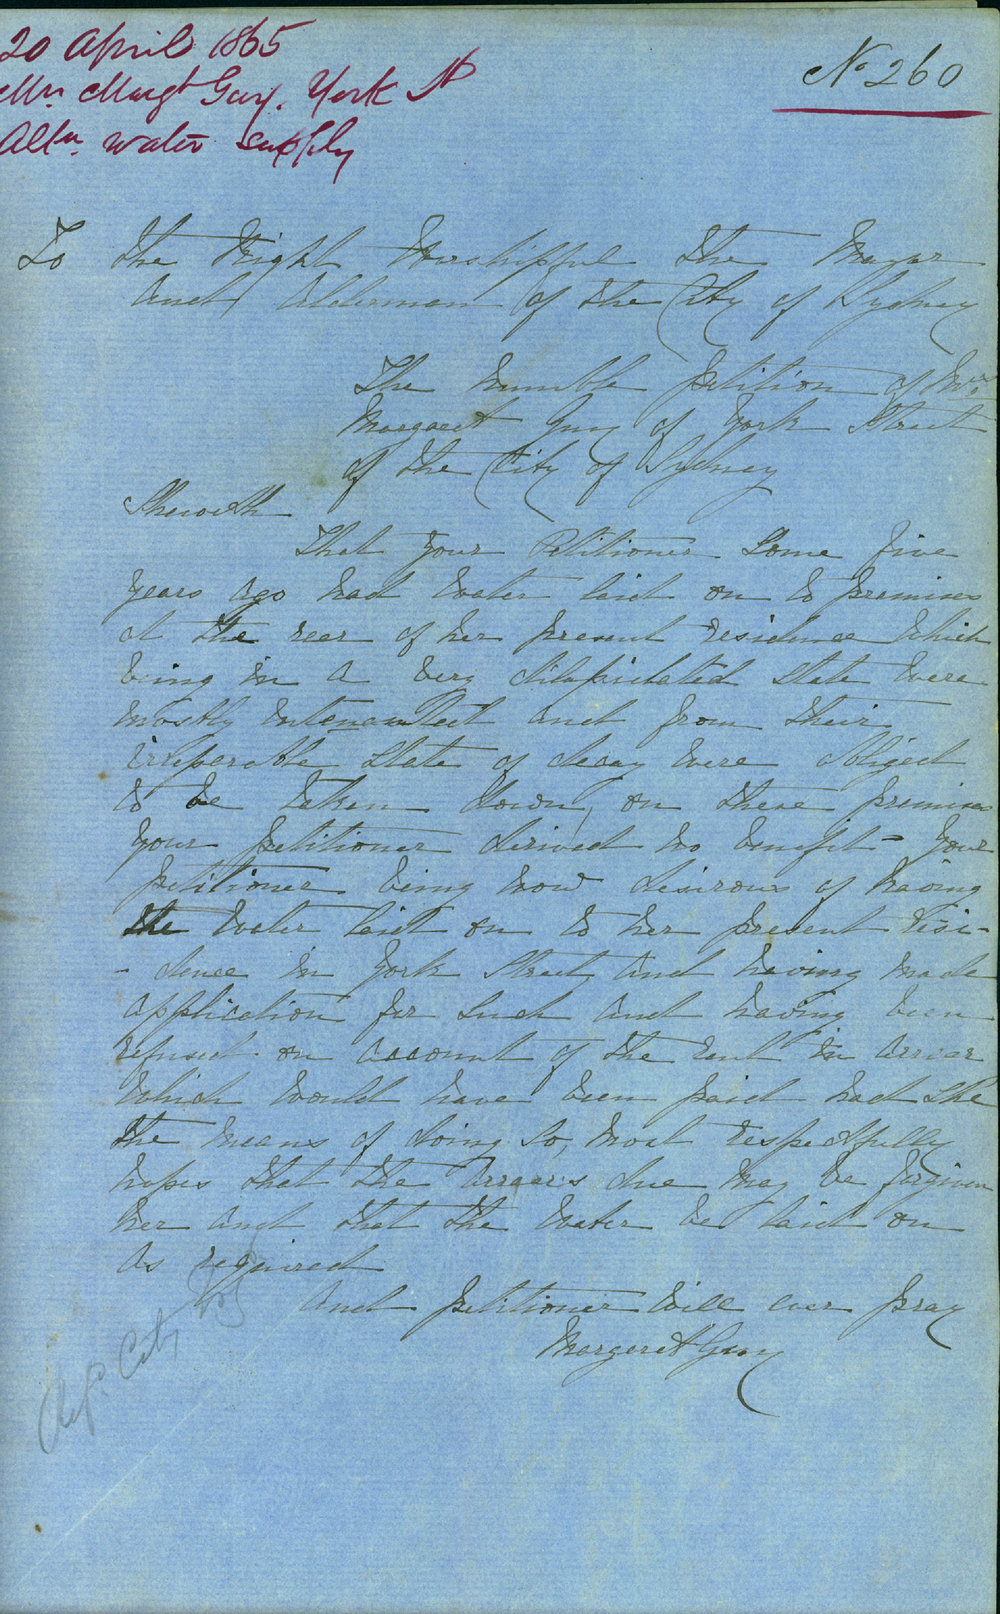 20 April 1865
Mrs Margt Guy. York St
Altn. water supply
No 260
To the Right Worshipful the Mayor
and Alderman of the City of Sydney
The humble petition of Mrs
Margaret Guy of York Street
of the City of Sydney
Sheweth
That your Petitioner Some five
years ago had water laid on to premises
at the rear of her present residence which
being in a very dilapidated state were
mostly untenanted and from their
irreperable state of decay were obliged
to be taken down, on these premises
your petitioner derived no benefit - your
petitioner being now desirous of having
the water laid on to her present resi-
- dence in York Street, and having made
application for such and having been
refused on account of the rent in arrear
which would have been paid had she
the means of doing so, most respectfully
hopes that the arrears due may be forgiven
her and that the water be laid on
as required
And petitioner will ever pray
Margaret Guy
City